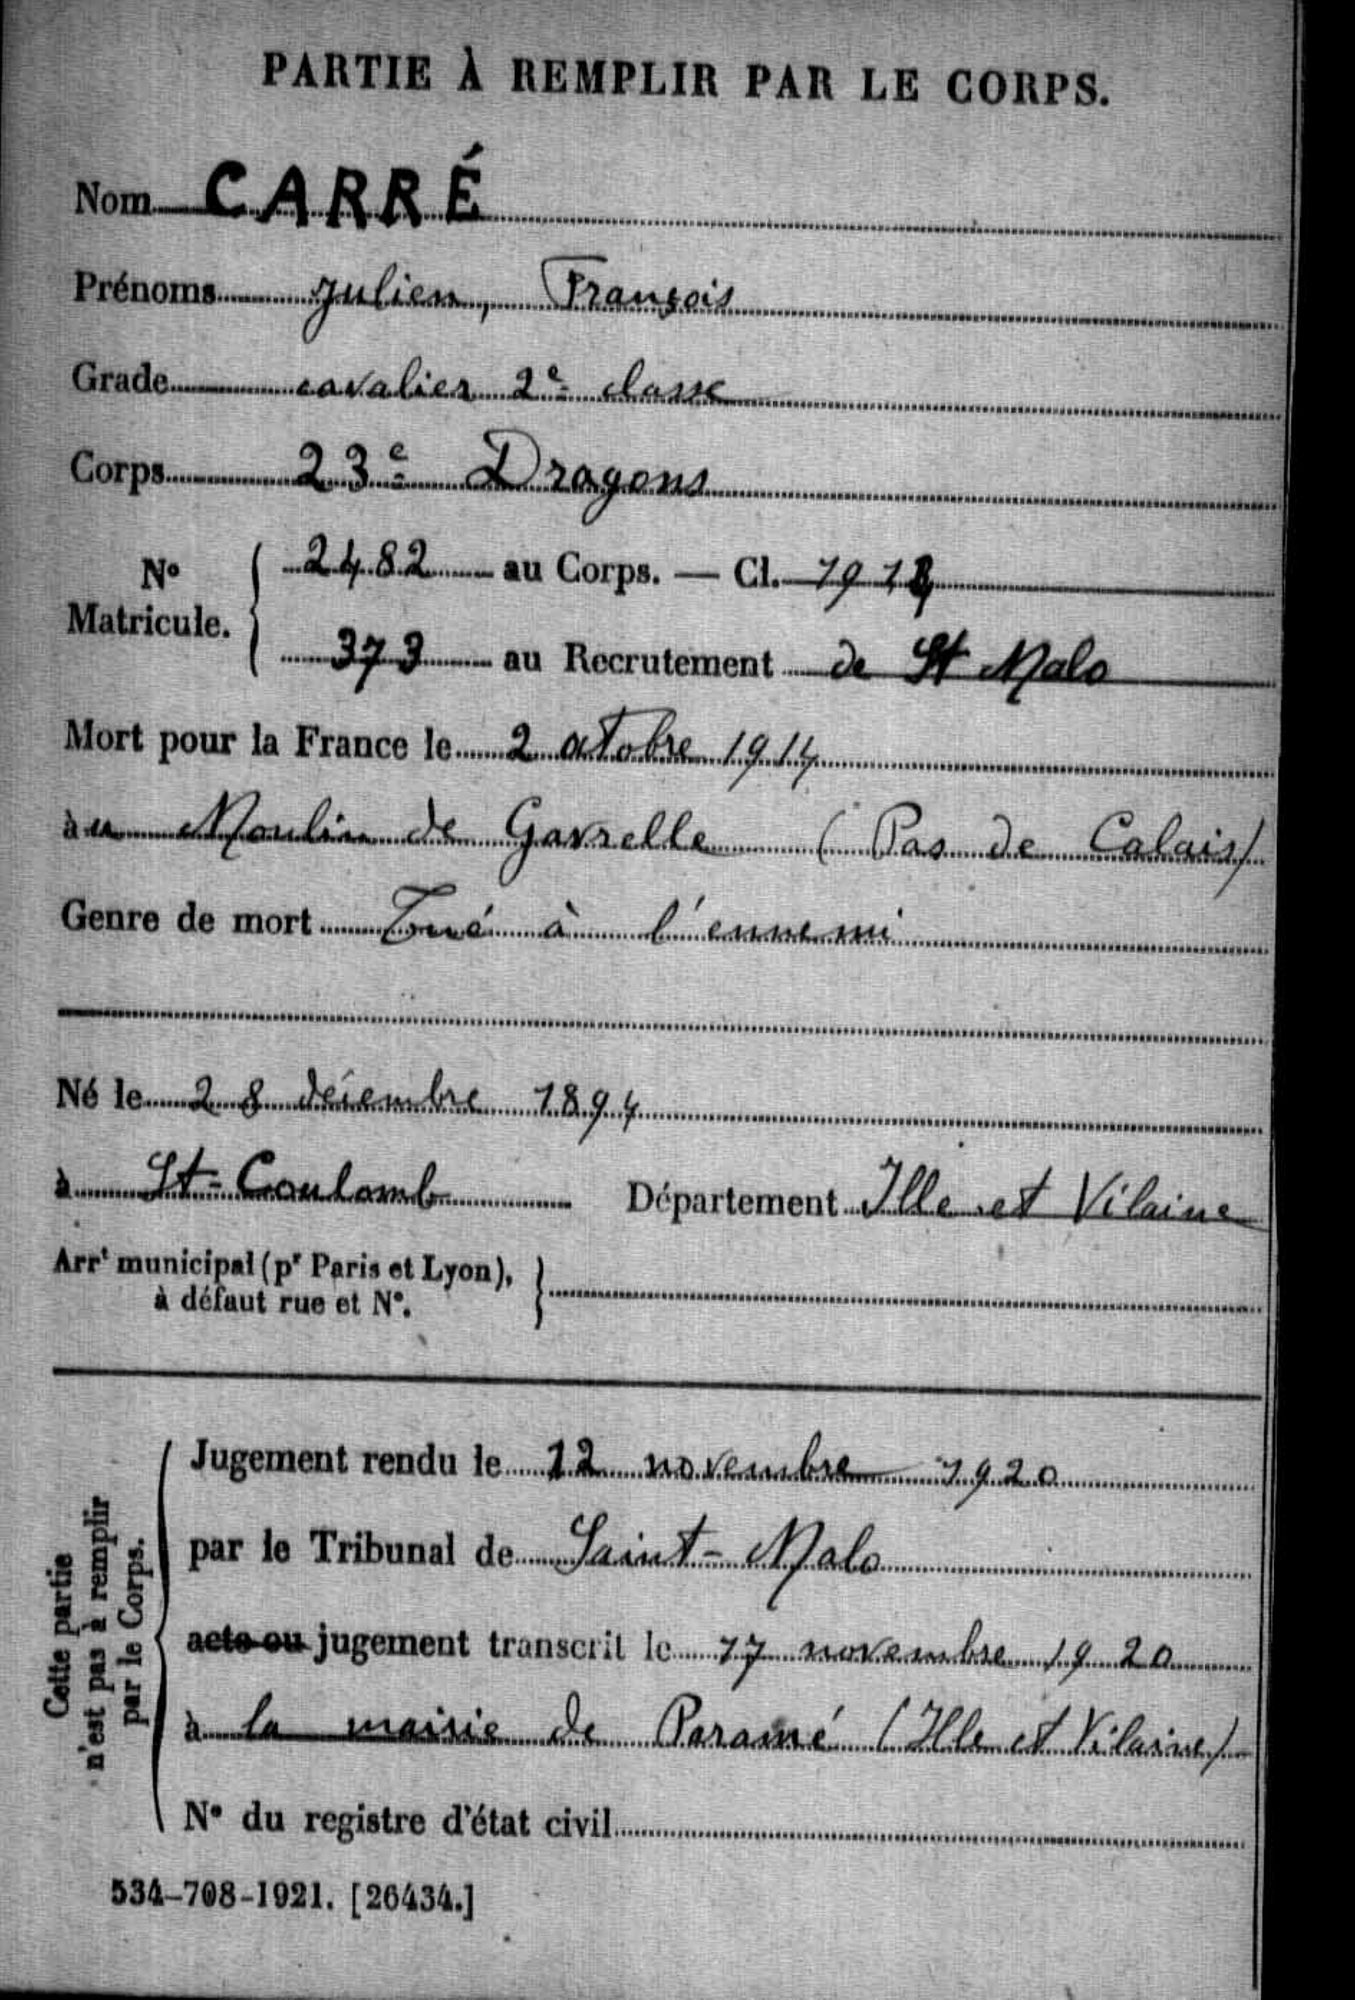 PARTIE À REMPLIR PAR LE CORPS.
Nom CARRÉ
Prénoms Julien, François
Grade cavalier 2e classe
Corps 23e Dragons
No Matricule. { 2482 au Corps. — Cl.
373 au Recrutement de St Malo
Mort pour la France le 2 octobre 1914
à u Moulin de Gavrelle (Pas de Calais)
Genre de mort Tué à l'ennemi
Né le 28 décembre 1894
à St-Coulomb Département Ille et Vilaine
Arrt municipal (pr Paris et Lyon),
à défaut rue et No.
Cette partie
n'est pas à remplir
par le Corps.
Jugement rendu le 12 novembre 1920
par le Tribunal de Saint-Malo
acte ou jugement transcrit le 17 novembre 1920
à la mairie de Paramé (Ille et Vilaine)
No du registre d'état civil
534-708-1921. [26434.]